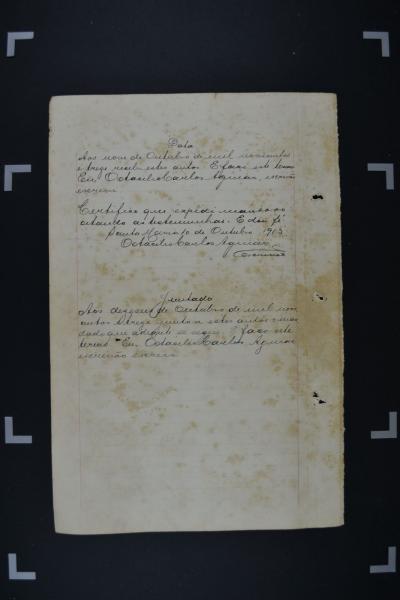 Data
Aos nove de Outubro de mil novecentos
e treze recebi estes autos. E faço este termo
Eu, Octacilio Carlos Aguiar, escrivão
escrevi
Certifico que expedi mandado
citando as testemunhas. E dou fé
Santa de Outubro 1913
Octacilio Carlos Aguiar
Juntado
Aos de Outubro de mil nove
centos e treze junto a estes autos o man
dado que adiante se segue. E faço este
termo. Eu, Octacilio Carlos Aguiar
escrivão escrevi